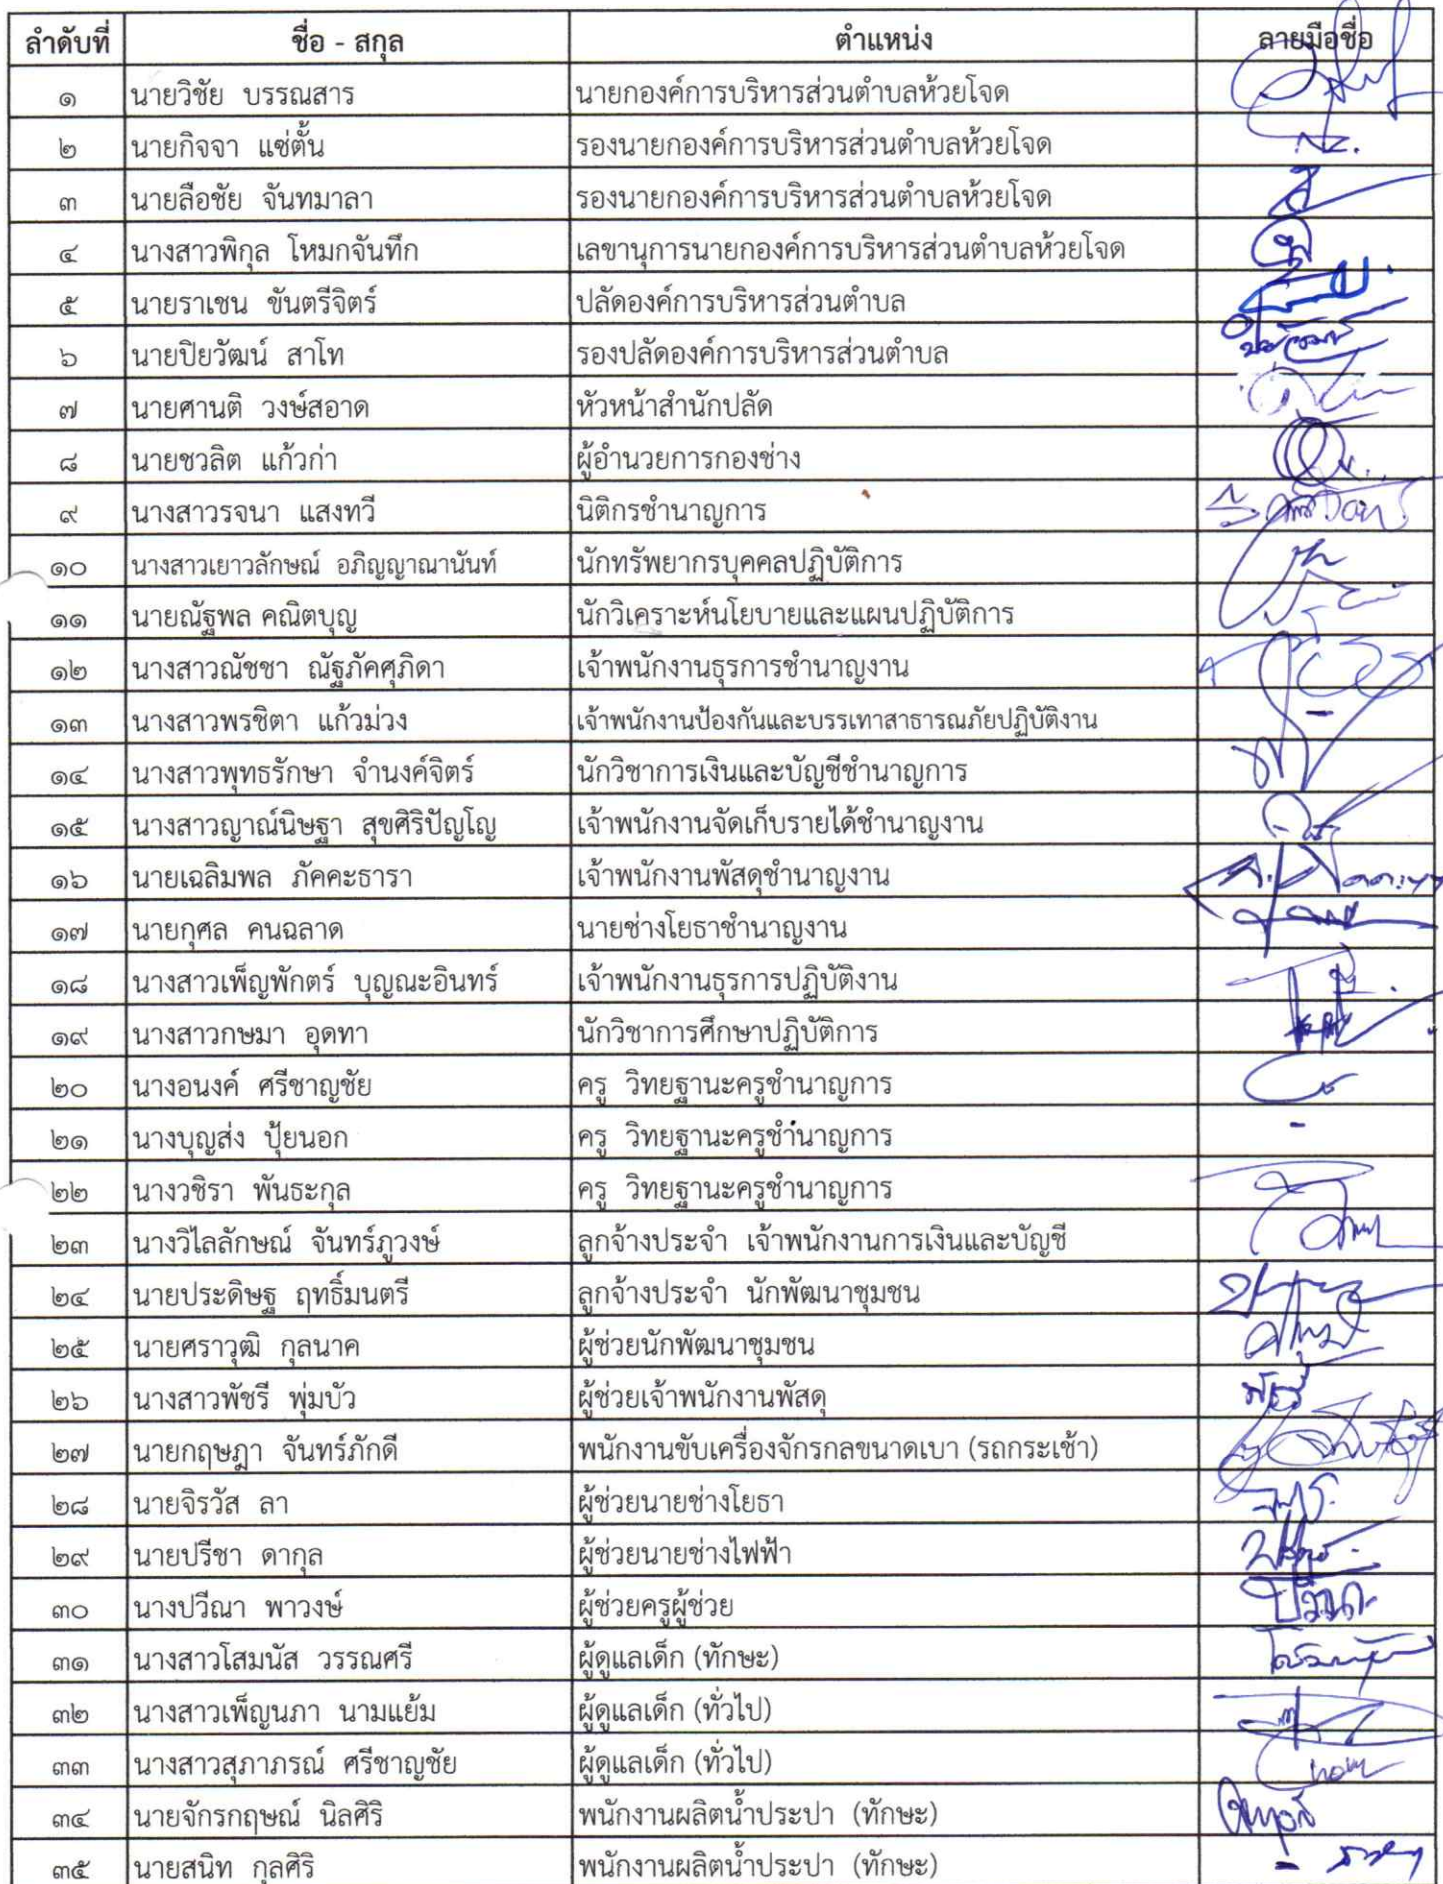 ลำดับที่ ชื่อ - สกุล ตำแหน่ง ลายมือชื่อ
๑ นายวิชัย บรรณสาร นายกองค์การบริหารส่วนตำบลห้วยโจด
๒ นายกิจจา แซ่ตั้น รองนายกองค์การบริหารส่วนตำบลห้วยโจด
๓ นายลือชัย จันทมาลา รองนายกองค์การบริหารส่วนตำบลห้วยโจด
๔ นางสาวพิกุล โหมกจันทึก เลขานุการนายกองค์การบริหารส่วนตำบลห้วยโจด
๕ นายราเชน ขันตรีจิตร์ ปลัดองค์การบริหารส่วนตำบล
๖ นายปิยวัฒน์ สาโท รองปลัดองค์การบริหารส่วนตำบล
๗ นายศานติ วงษ์สอาด หัวหน้าสำนักปลัด
๘ นายชวลิต แก้วก่า ผู้อำนวยการกองช่าง
๙ นางสาวรจนา แสงทวี นิติกรชำนาญการ
๑๐ นางสาวเยาวลักษณ์ อภิญญาณานันท์ นักทรัพยากรบุคคลปฏิบัติการ
๑๑ นายณัฐพล คณิตบุญ นักวิเคราะห์นโยบายและแผนปฏิบัติการ
๑๒ นางสาวณัชชา ณัฐภัคศุภิดา เจ้าพนักงานธุรการชำนาญงาน
๑๓ นางสาวพรชิตา แก้วม่วง เจ้าพนักงานป้องกันและบรรเทาสาธารณภัยปฏิบัติงาน -
๑๔ นางสาวพุทธรักษา จำนงค์จิตร์ นักวิชาการเงินและบัญชีชำนาญการ
๑๕ นางสาวญาณ์นิษฐา สุขศิริปัญโญ เจ้าพนักงานจัดเก็บรายได้ชำนาญงาน
๑๖ นายเฉลิมพล ภัคคะธารา เจ้าพนักงานพัสดุชำนาญงาน
๑๗ นายกุศล คนฉลาด นายช่างโยธาชำนาญงาน
๑๘ นางสาวเพ็ญพักตร์ บุญณะอินทร์ เจ้าพนักงานธุรการปฏิบัติงาน
๑๙ นางสาวกษมา อุดทา นักวิชาการศึกษาปฏิบัติการ
๒๐ นางอนงค์ ศรีชาญชัย ครู วิทยฐานะครูชำนาญการ
๒๑ นางบุญส่ง ปุ้ยนอก ครู วิทยฐานะครูชำนาญการ -
๒๒ นางวชิรา พันธะกุล ครู วิทยฐานะครูชำนาญการ
๒๓ นางวิไลลักษณ์ จันทร์ภูวงษ์ ลูกจ้างประจำ เจ้าพนักงานการเงินและบัญชี
๒๔ นายประดิษฐ ฤทธิ์มนตรี ลูกจ้างประจำ นักพัฒนาชุมชน
๒๕ นายศราวุฒิ กุลนาค ผู้ช่วยนักพัฒนาชุมชน
๒๖ นางสาวพัชรี พุ่มบัว ผู้ช่วยเจ้าพนักงานพัสดุ พัชรี
๒๗ นายกฤษฎา จันทร์ภักดี พนักงานขับเครื่องจักรกลขนาดเบา (รถกระเช้า)
๒๘ นายจิรวัส ลา ผู้ช่วยนายช่างโยธา
๒๙ นายปรีชา ดากุล ผู้ช่วยนายช่างไฟฟ้า
๓๐ นางปวีณา พาวงษ์ ผู้ช่วยครูผู้ช่วย ปวีณา
๓๑ นางสาวโสมนัส วรรณศรี ผู้ดูแลเด็ก (ทักษะ) โสมนัส
๓๒ นางสาวเพ็ญนภา นามแย้ม ผู้ดูแลเด็ก (ทั่วไป)
๓๓ นางสาวสุภาภรณ์ ศรีชาญชัย ผู้ดูแลเด็ก (ทั่วไป)
๓๔ นายจักรกฤษณ์ นิลศิริ พนักงานผลิตน้ำประปา (ทักษะ)
๓๕ นายสนิท กุลศิริ พนักงานผลิตน้ำประปา (ทักษะ) -